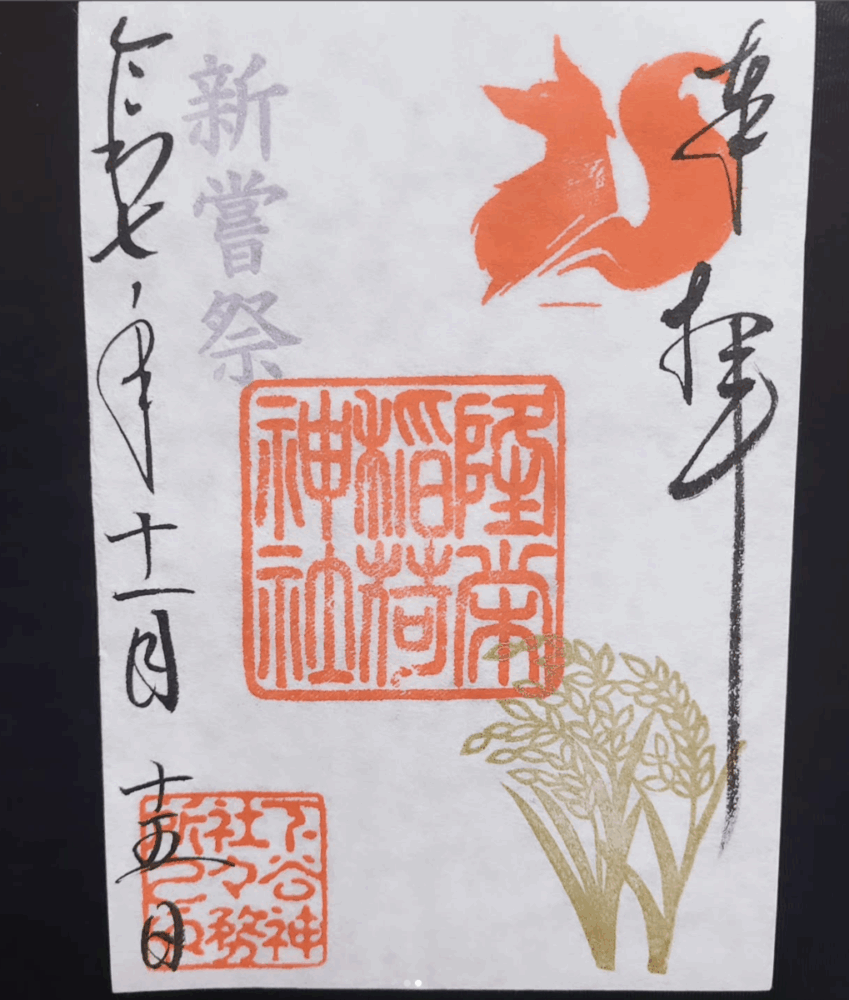 奉拝
隆栄
稲荷
神社
新嘗祭
令和七年十一月十五日
下谷神
社々務
所之印